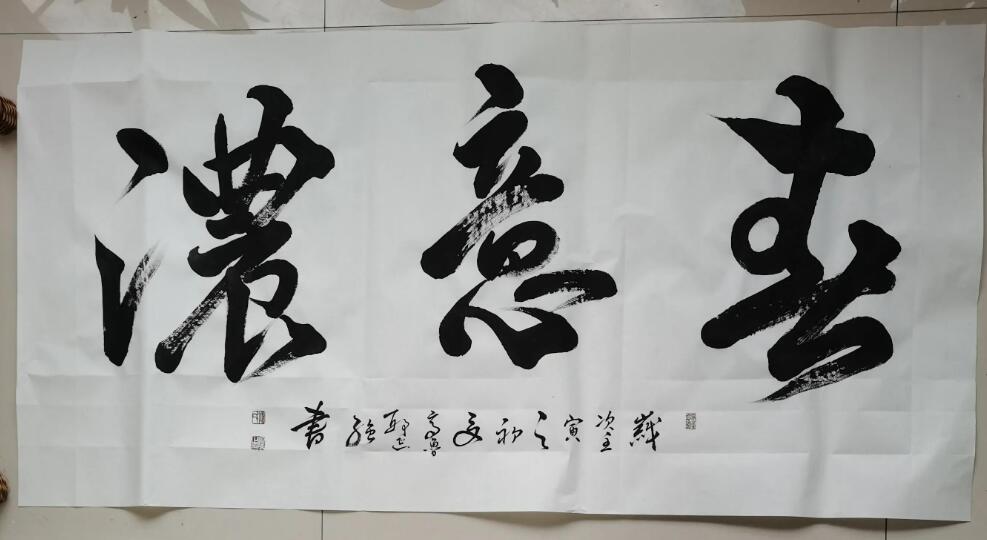 春意濃
歲次壬寅之初夏齊魯聖強書